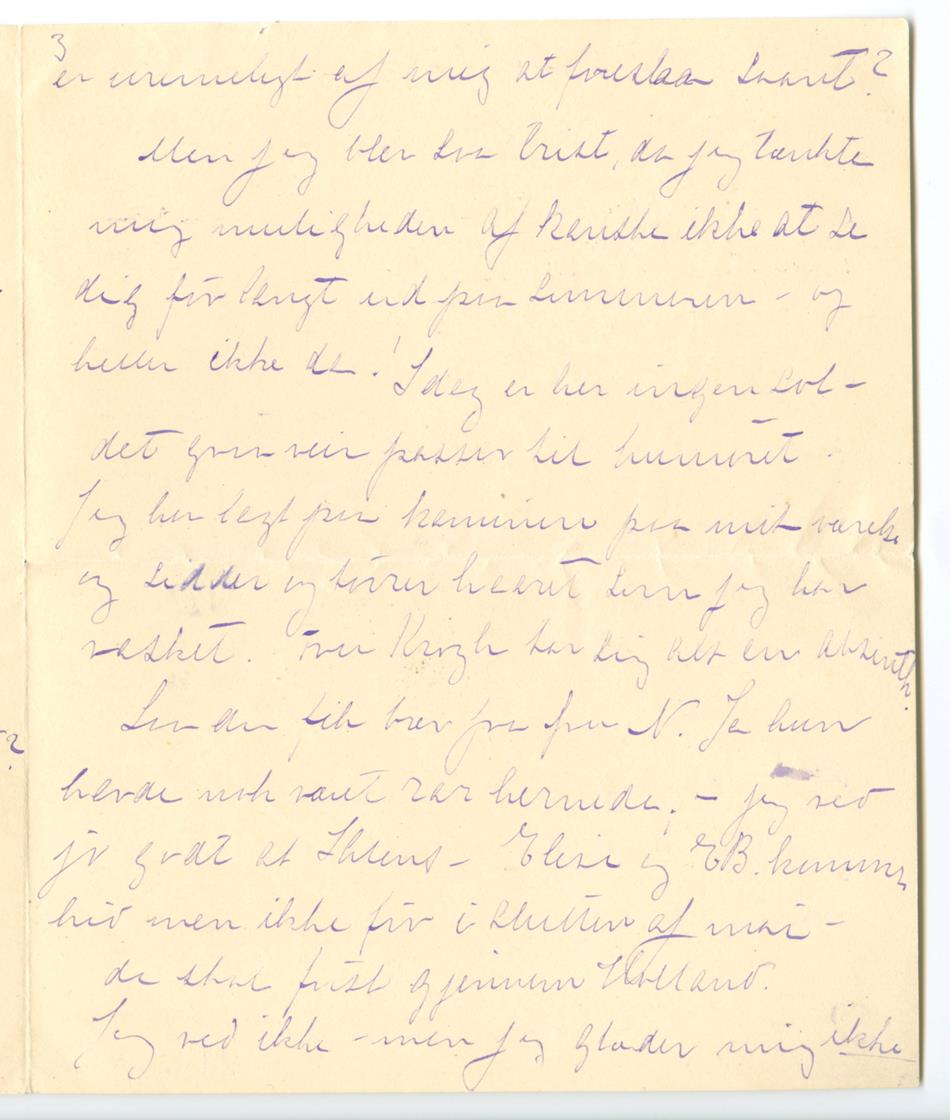 3
er urimeligt af mig at foreslaa saant?
Men jeg blev saa trist, da jeg tænkte
mig muligheden af kanske ikke at se
dig før langt ud paa sommeren – og
heller ikke da! Idag er her ingen sol –
det graa veir passer til humøret.
Jeg har lagt paa kaminen paa mit værelse
og sidder og tørrer haaret som jeg har
vasket. Krogh tar sig alt en absinth.
fik brev fra fru N. Ja hun
havde nok været rar hernede. – jeg ved
jo godt at – Elise og EB. kommer
hid men ikke før i slutten af mai –
de skal først gjennem Holland.
Jeg ved ikke – men jeg glæder mig ikke